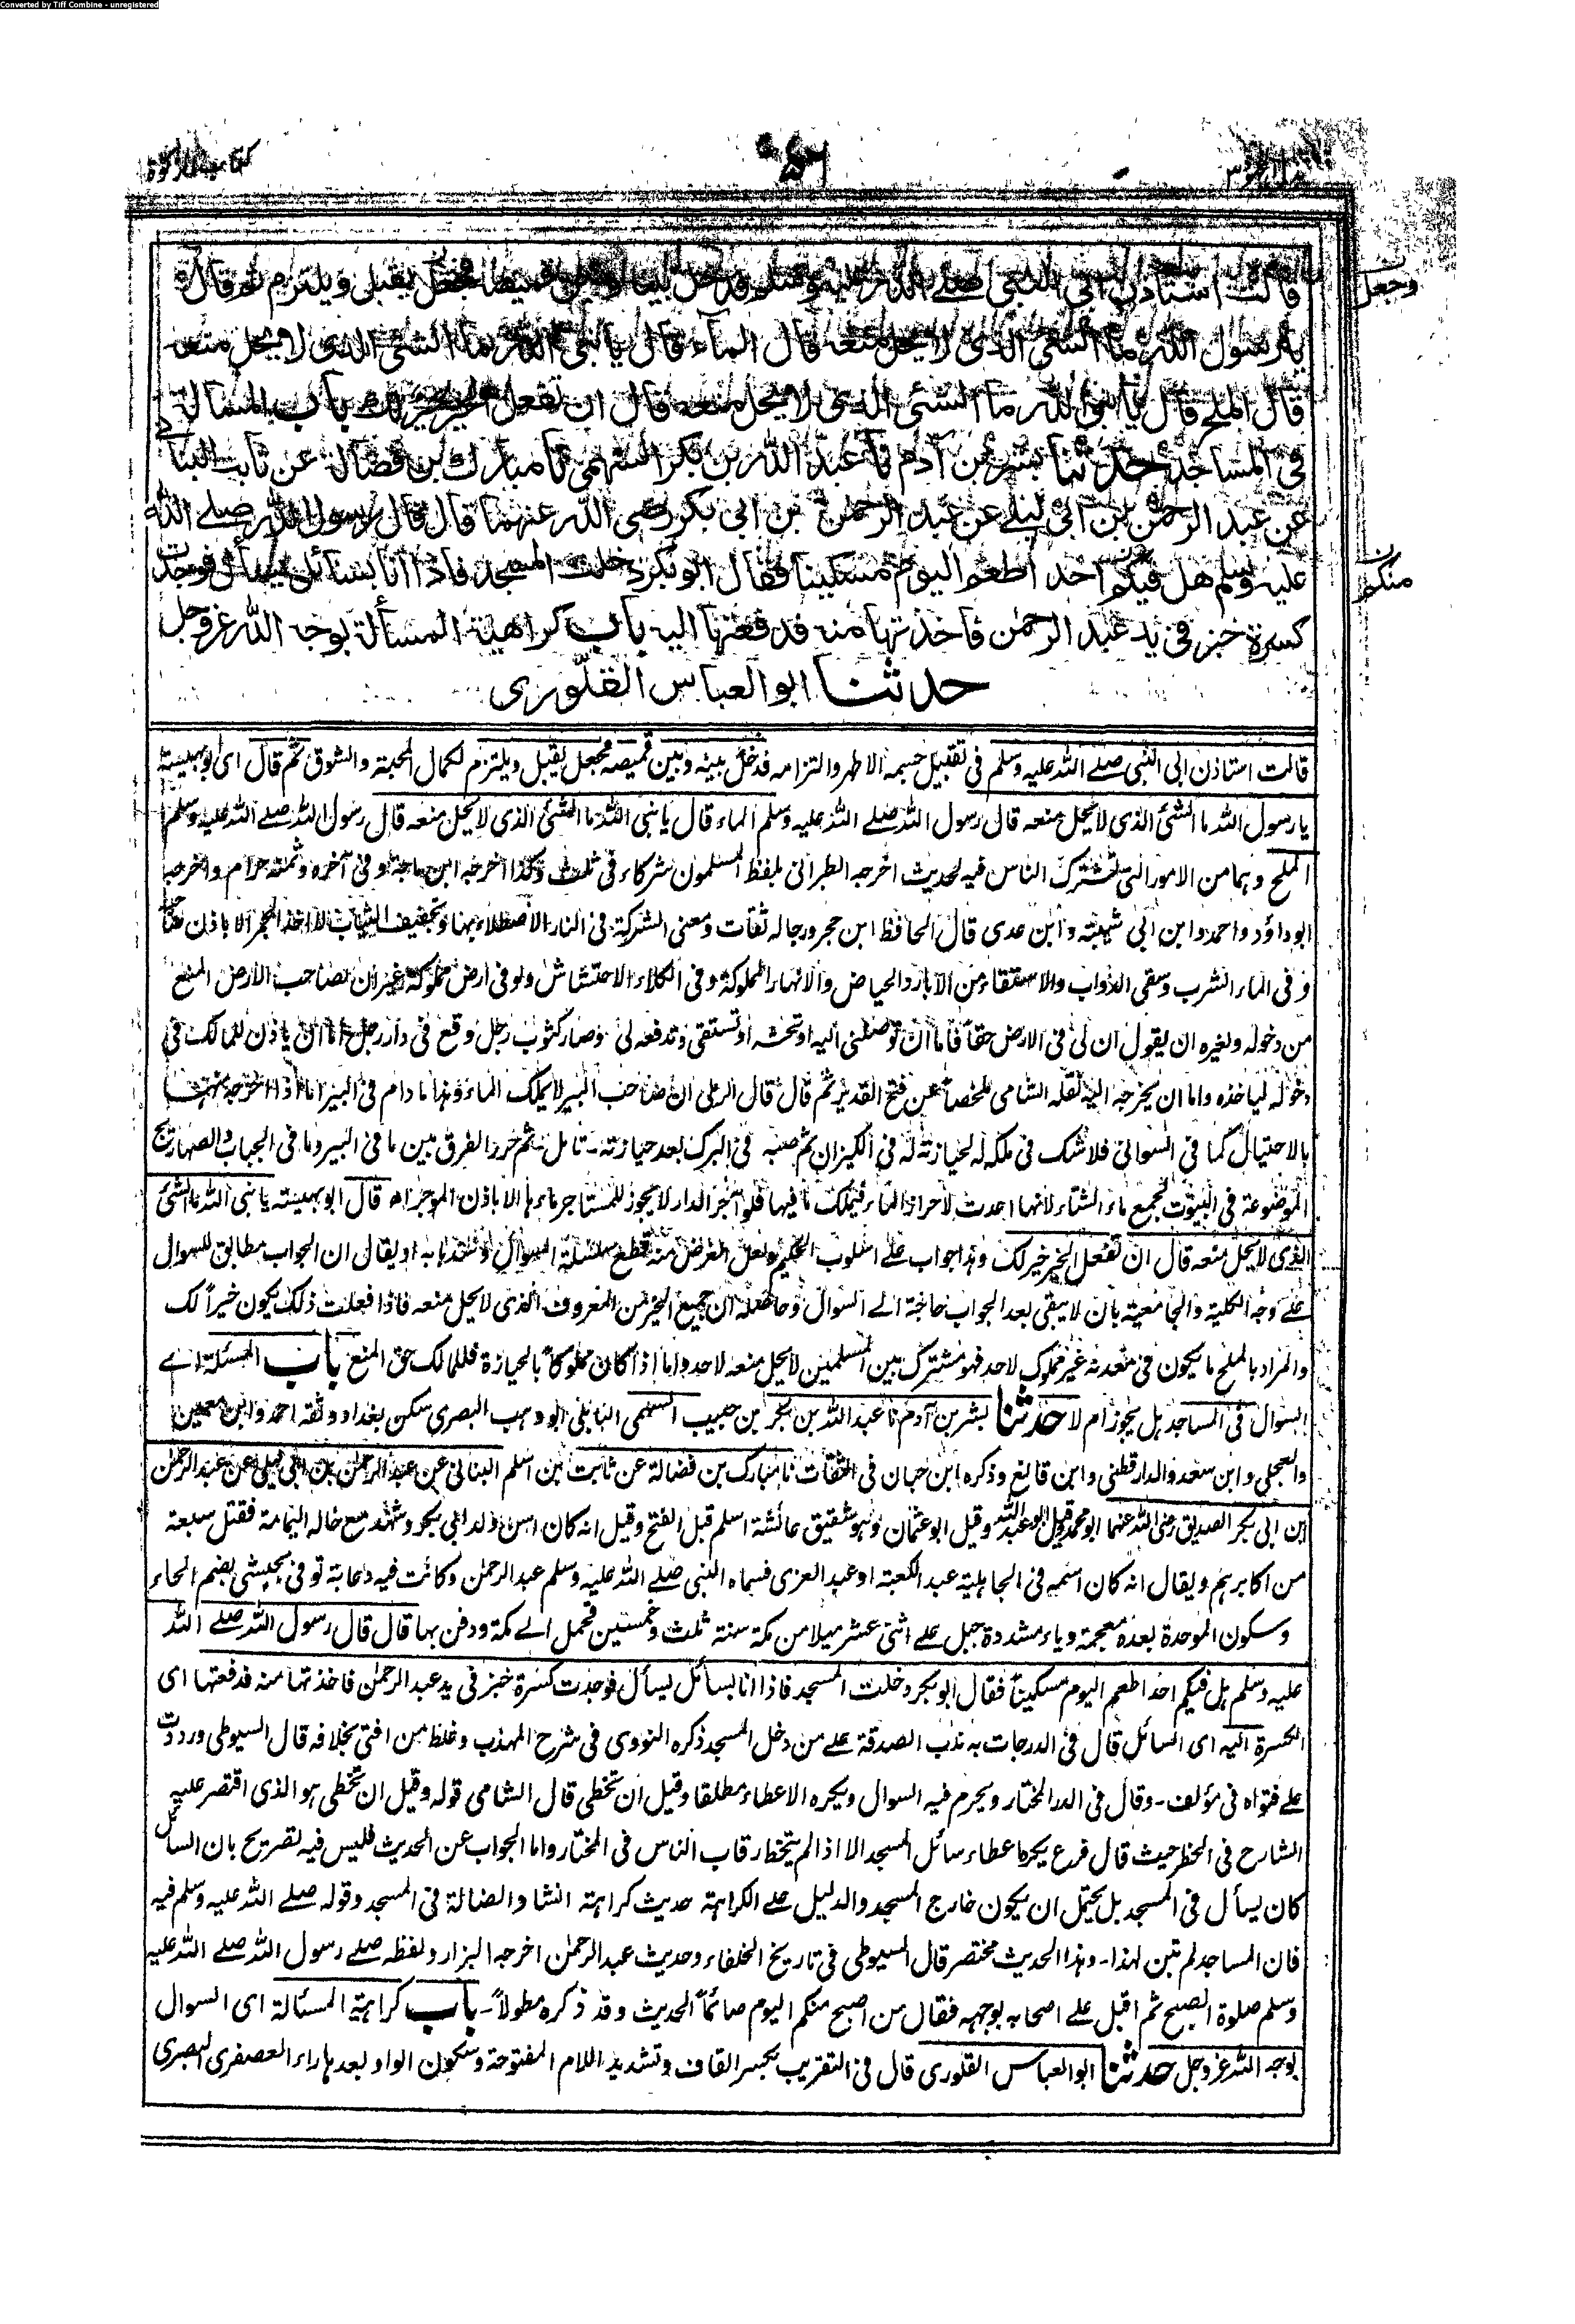 Converted by Tiff Combine - unregistered
كتاب الزكوة
٥٦
قالت استاذن ابي النبي صلے اللہ عليه وسلم فدخل بينه وبين قميصه فجعل يقبل ويلتزم ثم قال
وجعل
يا رسول الله ما الشئ الذى لا يحل منعه قال المآء قال يا نبى الله ما الشئ الذى لا يحل منعه
قال الملح قال يا نبى الله ما الشئى الذى لا يحل منعه قال ان تفعل الخير خير لك باب المسألة
فى المساجد حدثنا بشر بن آدم نا عبد الله بن بكر السهمى نا مبارك بن فضالة عن ثابت البنانى
عن عبد الرحمٰن بن ابى ليلے عن عبد الرحمٰن بن ابى بكر رضى الله عنهما قال قال رسول الله صلے الله
عليه وسلم هل فيكم احد اطعم اليوم مسكينا فقال ابو بكر دخلت المسجد فاذا انا بسائل يسأل فوجدت
منكم
كسرة خبز فى يد عبد الرحمٰن فاخذتها منه فدفعتها اليه باب كراهية المسألة بوجه الله عز وجل
حدثنا ابو العباس القلّورى
قالت استاذن ابى النبى صلے الله عليه وسلم فى تقبيل جسمه الاطهر والتزامه فدخل بينه وبين قميصه فجعل يقبل ويلتزم لكمال المحبة والشوق ثم قال اى ابو بهيسة
يا رسول الله ما الشئ الذى لا يحل منعه قال رسول الله صلے الله عليه وسلم الماء قال يا نبى الله ما الشئ الذى لا يحل منعه قال رسول الله صلے الله عليه وسلم
الملح وهما من الامور التى تشترك الناس فيه لحديث اخرجه الطبرانى بلفظ المسلمون شركاء فى ثلث وكذا اخرجه ابن ماجة وفى آخره وثمنه حرام واخرجه
ابو داؤد واحمد وابن ابى شيبة وابن عدى قال الحافظ ابن حجر ورجاله ثقات ومعنى الشركة فى النار الاصطلاء بها وتجفيف الثياب لا اخذ الجمر الا باذن صاحبه
وفى الماء الشرب وسقى الدواب والاستقاء من الآبار والحياض والانهار المملوكة وفى الكلاء الاحتشاش ولو فى ارض مملوكة غير ان لصاحب الارض المنع
من دخوله ولغيره ان يقول ان لى فى الارض حقا فاما ان توصلنى اليه او تحشه او تستقى وتدفعه لى وصار كثوب رجل وقع فى دار رجل اما ان ياذن للمالك فى
دخوله لياخذه واما ان يخرجه اليه نقله الشامى ملخصا عن فتح القدير ثم قال قال الرملى ان صاحب البير لا يملك الماء وهذا ما دام فى البير اما اذا اخرجه منها
بالاحتيال كما فى السوانى فلا شك فى ملكه له لحيازته له فى الكيزان ثم صبه فى البرك بعد حيازته - تامل - ثم حرر الفرق بين ما فى البير وما فى الجباب والصهاريج
الموضوعة فى البيوت لجمع ماء الشتاء لانها اعدت لاحراز الماء فيملك ما فيها فلو آجر الدار لا يجوز للمستاجر ماءها الا باذن الموجر اه قال ابو بهيسة يا نبى الله ما الشئ
الذى لا يحل منعه قال ان تفعل الخير خير لك وهذا جواب على اسلوب الحكيم ولعل الغرض منه قطع سلسلة السوال وسد بابه او يقال ان الجواب مطابق للسوال
علے وجه الكلية والجامعية بان لا يبقى بعد الجواب حاجة الے السوال وحاصله ان جميع الخير من المعروف الذى لا يحل منعه فاذا فعلت ذلك يكون خيراً لك
والمراد بالملح ما يكون فى معدنه غير مملوك لاحد فهو مشترك بين المسلمين لا يحل منعه لاحد واما اذا كان مملوكا بالحيازة فللمالك حق المنع باب المسئلة اے
السوال فى المساجد هل يجوز ام لا حدثنا بشر بن آدم نا عبد الله بن بكر بن حبيب السهمى الباهلى ابو وهب البصرى سكن بغداد وثقه احمد وابن معين
والعجلى وابن سعد والدارقطنى وابن قانع وذكره ابن حبان فى الثقات نا مبارك بن فضالة عن ثابت بن اسلم البنانى عن عبد الرحمٰن بن ابى ليلى عن عبد الرحمٰن
ابن ابى بكر الصديق رضى الله عنهما ابو محمد وقيل ابو عبد الله وقيل ابو عثمان وهو شقيق عائشة اسلم قبل الفتح وقيل انه كان اسن ولد ابى بكر وشهد مع خالد اليمامة فقتل سبعة
من اكابرهم ويقال انه كان اسمه فى الجاهلية عبد الكعبة او عبد العزى فسماه النبى صلے الله عليه وسلم عبد الرحمٰن وكانت فيه دعابة توفى بحبشى بضم الحاء
وسكون الموحدة بعده معجمة وياء مشددة جبل على اثنى عشر ميلا من مكة سنة ثلث وخمسين فحمل الے مكة ودفن بها قال قال رسول الله صلے الله
عليه وسلم هل فيكم احد اطعم اليوم مسكيناً فقال ابو بكر دخلت المسجد فاذا انا بسائل يسأل فوجدت كسرة خبز فى يد عبد الرحمٰن فاخذتها منه فدفعتها اى
الكسرة اليه اى السائل قال فى الدرجات به ندب الصدقة على من دخل المسجد ذكره النووى فى شرح المهذب وغلط من افتى بخلافه قال السيوطى ورددت
علے فتواه فى مؤلف - وقال فى الدر المختار ويحرم فيه السوال ويكره الاعطاء مطلقا وقيل ان تخطى قال الشامى قوله وقيل ان تخطى هو الذى اقتصر عليه
الشارح فى الحظر حيث قال فرع يكره اعطاء سائل المسجد الا اذا لم يتخط رقاب الناس فى المختار واما الجواب عن الحديث فليس فيه تصريح بان السائل
كان يسأل فى المسجد بل يحتمل ان يكون خارج المسجد والدليل علے الكراهة حديث كراهة انشاد الضالة فى المسجد وقوله صلے الله عليه وسلم فيه
فان المساجد لم تبن لهذا - وهذا الحديث مختصر قال السيوطى فى تاريخ الخلفاء وحديث عبد الرحمٰن اخرجه البزار ولفظه صلے رسول الله صلے الله عليه
وسلم صلوة الصبح ثم اقبل علے اصحابه بوجهه فقال من اصبح منكم اليوم صائماً الحديث وقد ذكره مطولاً - باب كراهة المسئالة اى السوال
بوجه الله عز وجل حدثنا ابو العباس القلورى قال فى التقريب بكسر القاف وتشديد اللام المفتوحة وسكون الواو بعدها راء العصفرى البصرى